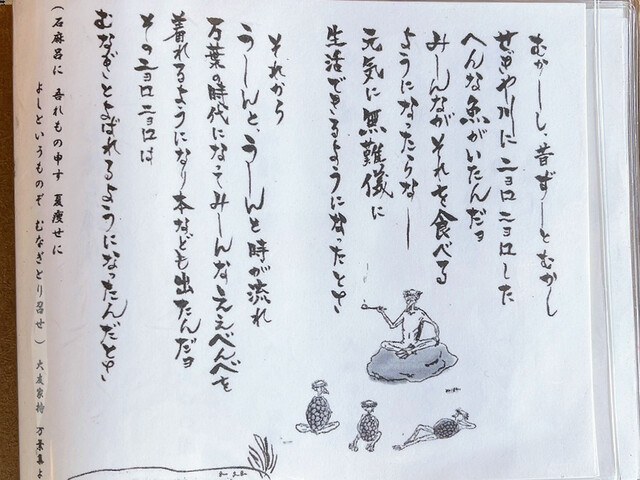 むかーしし、昔ずーとむかし
せぎや川にニョロニョロした
へんな魚がいたんだョ
みーんながそれを食べる
ようになったらなー
元気に無難儀に
生活できるようになったとさ
それから
うーんと、うーんと時が流れ
万葉の時代になってみーんなええべべを
着れるようになり本なども出たんだョ
そのニョロニョロは
むなぎとよばれるようになったんだとさ
(石麻呂に 吾れもの申す 夏痩せに
よしというものぞ むなぎとり召せ) 大友家持 万葉集よ